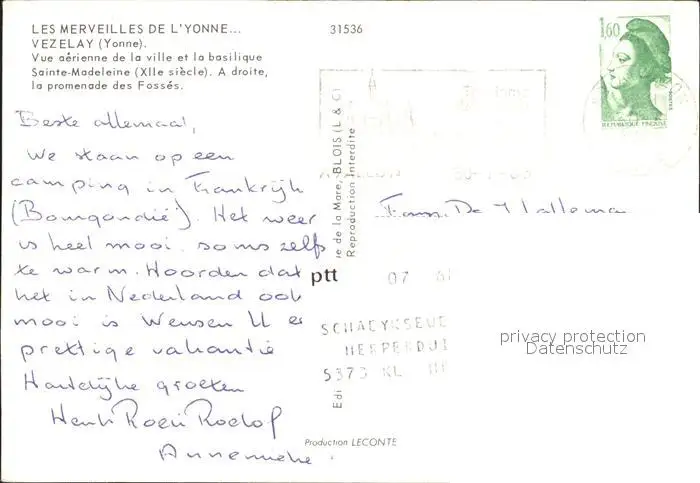 LES MERVEILLES DE L'YONNE...
VEZELAY (Yonne).
Vue aérienne de la ville et la basilique
Sainte-Madeleine (XIIe siècle). A droite,
la promenade des Fossés.
31536
Beste allemaal,
We staan op een
camping in Frankrijk
(Bourgondië). Het weer
is heel mooi. soms zelfs
te warm. Hoorden dat
het in Nederland ook
mooi is Wensen U er
prettige vakantie
Hartelijke groeten
Henk Roen Roelof
Annemieke
Production LECONTE
re de la Mare, BLOIS (L & C)
Reproduction Interdite
Edi
1,60
REPUBLIQUE FRANÇAISE
AVALLON
Fam. De
ptt
07
5373 KL
privacy protection
Datenschutz